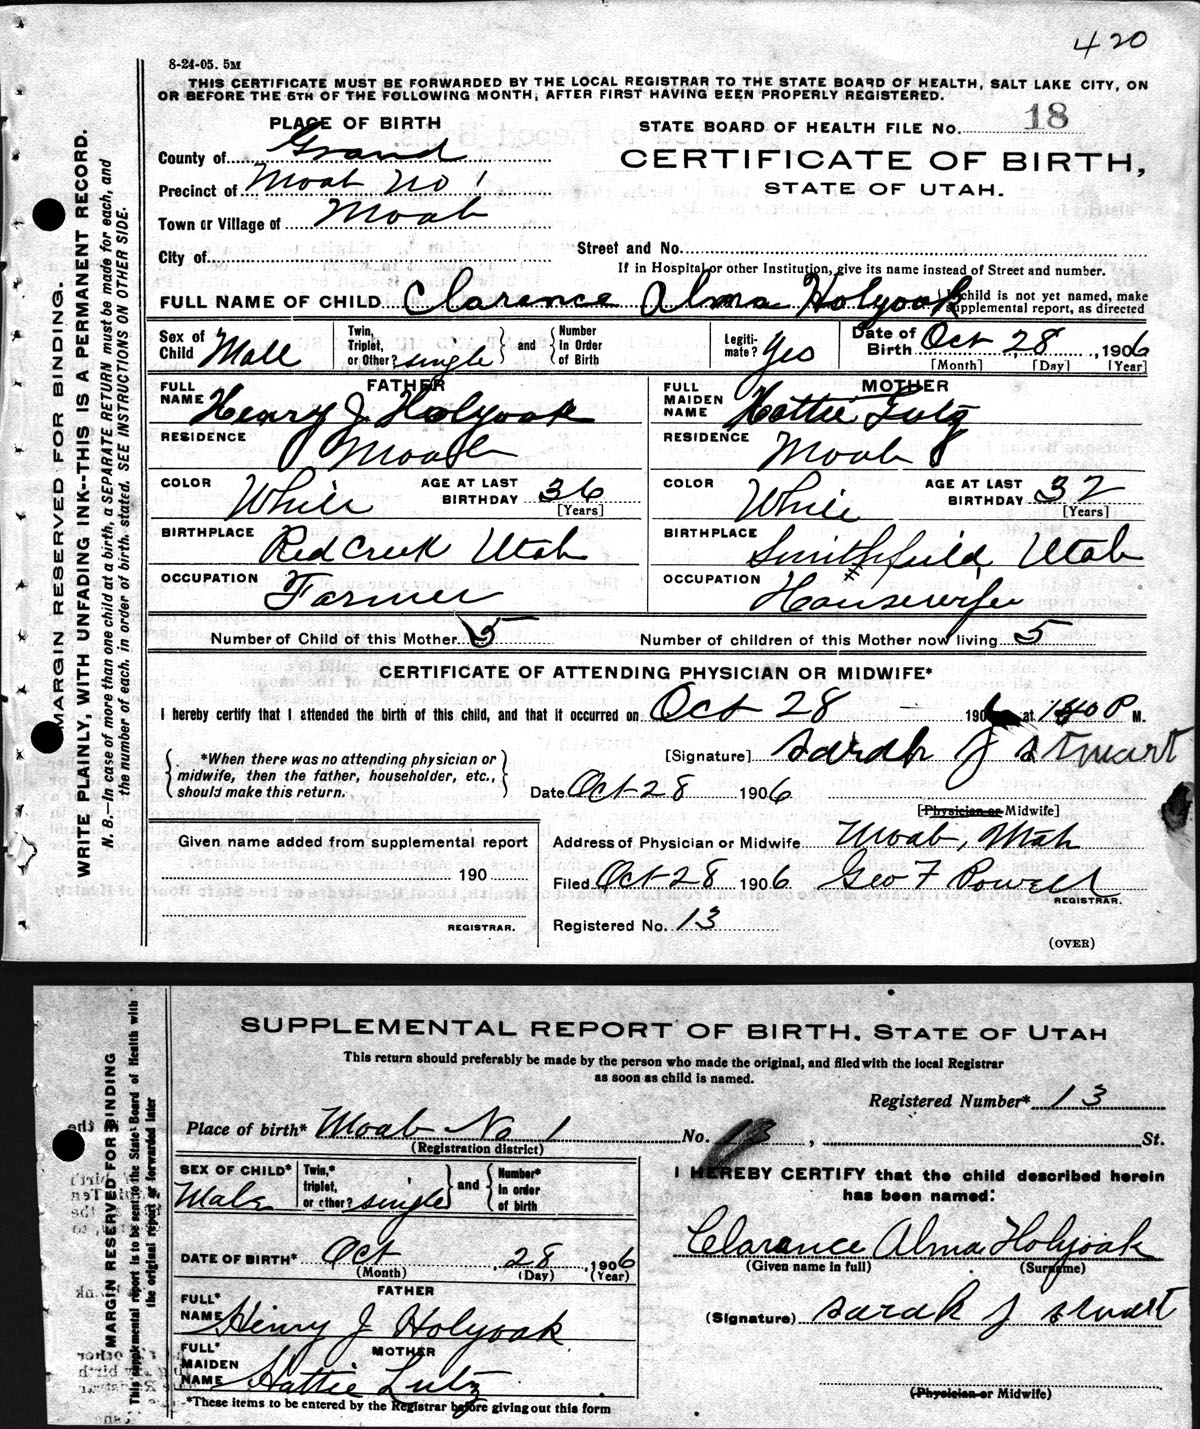 420
8-24-05. 5M
THIS CERTIFICATE MUST BE FORWARDED BY THE LOCAL REGISTRAR TO THE STATE BOARD OF HEALTH, SALT LAKE CITY, ON
OR BEFORE THE 5TH OF THE FOLLOWING MONTH, AFTER FIRST HAVING BEEN PROPERLY REGISTERED.
PLACE OF BIRTH
STATE BOARD OF HEALTH FILE No. 18
County of Grand
CERTIFICATE OF BIRTH,
Precinct of Moab No 1
STATE OF UTAH.
Town or Village of Moab
City of
Street and No.
If in Hospital or other Institution, give its name instead of Street and number.
FULL NAME OF CHILD Clarence Alma Holyoak
If child is not yet named, make
supplemental report, as directed
Sex of Child Male
Twin, Triplet, or Other? single and Number In Order of Birth
Legiti-mate? Yes
Date of Birth Oct 28, 1906
[Month] [Day] [Year]
FATHER
FULL NAME Henry J. Holyoak
RESIDENCE Moab
COLOR White
AGE AT LAST BIRTHDAY 36
[Years]
BIRTHPLACE Red Creek Utah
OCCUPATION Farmer
MOTHER
FULL MAIDEN NAME Hattie Lutz
RESIDENCE Moab
COLOR White
AGE AT LAST BIRTHDAY 32
[Years]
BIRTHPLACE Smithfield, Utah
OCCUPATION Housewife
Number of Child of this Mother 5
Number of children of this Mother now living 5
CERTIFICATE OF ATTENDING PHYSICIAN OR MIDWIFE*
I hereby certify that I attended the birth of this child, and that it occurred on Oct 28 1906 at P M.
*When there was no attending physician or
midwife, then the father, householder, etc.,
should make this return.
[Signature] Sarah J Stewart
Date Oct 28 1906
[Physician or Midwife]
Given name added from supplemental report
190
REGISTRAR.
Address of Physician or Midwife Moab, Utah
Filed Oct 28 1906 Geo F Powell
REGISTRAR.
Registered No. 13
(OVER)
MARGIN RESERVED FOR BINDING.
WRITE PLAINLY, WITH UNFADING INK--THIS IS A PERMANENT RECORD.
N. B.—In case of more than one child at a birth, a SEPARATE RETURN must be made for each, and
the number of each, in order of birth, stated. SEE INSTRUCTIONS ON OTHER SIDE.
SUPPLEMENTAL REPORT OF BIRTH, STATE OF UTAH
This return should preferably be made by the person who made the original, and filed with the local Registrar
as soon as child is named.
Registered Number* 13
Place of birth* Moab No 1 No. 13, St.
(Registration district)
SEX OF CHILD* Male
Twin,* triplet, or other? single and Number* in order of birth
DATE OF BIRTH* Oct, 28, 1906
(Month) (Day) (Year)
FATHER
FULL* NAME Henry J Holyoak
MOTHER
FULL* MAIDEN NAME Hattie Lutz
*These items to be entered by the Registrar before giving out this form
I HEREBY CERTIFY that the child described herein
has been named:
Clarence Alma Holyoak
(Given name in full) (Surname)
(Signature) Sarah J Stuart
(Physician or Midwife)
MARGIN RESERVED FOR BINDING
This supplemental report is to be sent to the State Board of Health with
the original report or forwarded later